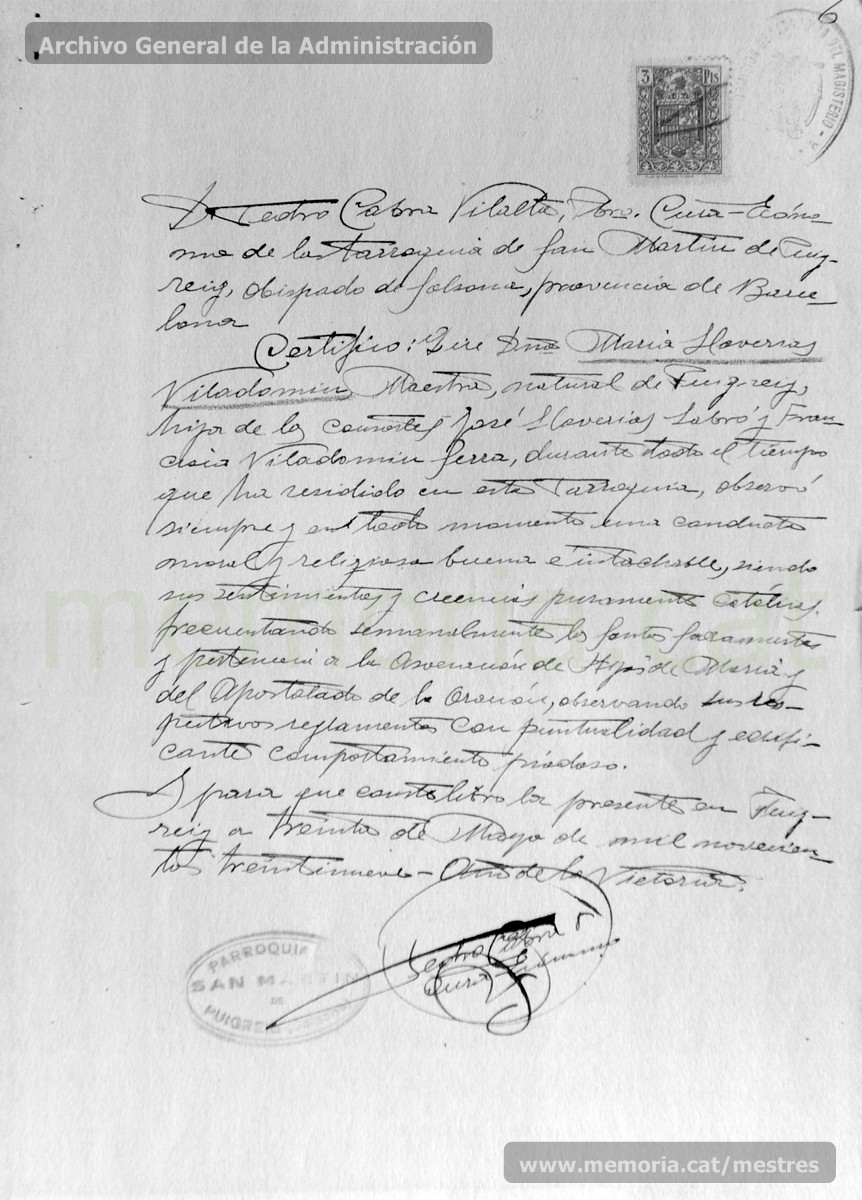 6
Archivo General de la Administración
3 Pts
DEL MAGISTERIO
D. Pedro Cabra Vilalta, Pbro. Cura-Ecóno-
mo de la Parroquia de San Martín de Puig-
reig, obispado de Solsona, provincia de Barce-
lona
Certifico: Que Dña María Lloverias
Viladomiu, Maestra, natural de Puigreig,
hija de los consortes José Lloverias Sobró y Fran-
cisca Viladomiu Serra, durante todo el tiempo
que ha residido en esta Parroquia, observó
siempre y en todo momento una conducta
moral y religiosa buena e intachable, siendo
sus sentimientos y creencias puramente católicas,
frecuentando semanalmente los Santos Sacramentos
y pertenecía a la Asociación de Hijas de María y
del Apostolado de la Oración, observando sus res-
pectivos reglamentos con puntualidad y edifi-
cante comportamiento piadoso.
Y para que conste libro la presente en Puig-
reig a treinta de Mayo de mil novecien-
tos treintinueve - Año de la Victoria.
Pedro Cabra
Cura Ecónomo
PARROQUIA
SAN MARTIN
DE
PUIGREIG
memoria.cat
www.memoria.cat/mestres